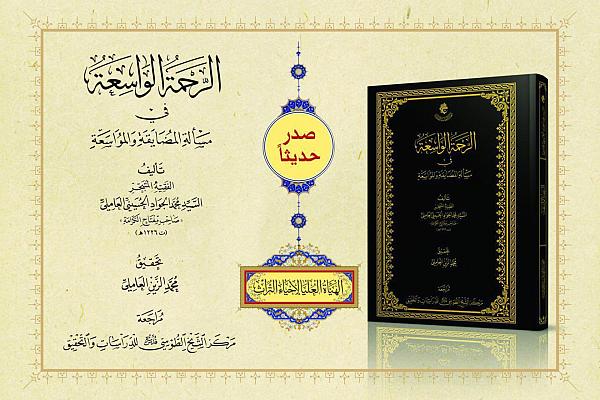 الرحمة الواسعة
في
مسألة المضايقة والمواسعة
تأليف
الفقيه المتبحر
السيد محمد الجواد الحسيني العاملي
«صاحب مفتاح الكرامة»
(ت ١٢٢٦هـ)
تحقيق
محمد الزين العاملي
مراجعة
مركز الشيخ الطوسي للدراسات والتحقيق
صدر
حديثاً
الهيأة العليا لإحياء التراث
الرحمة الواسعة
في
مسألة المضايقة والمواسعة
تأليف
الفقيه المتبحر
السيد محمد الجواد الحسيني العاملي
تحقيق
محمد الزين العاملي
مراجعة
مركز الشيخ الطوسي للدراسات والتحقيق